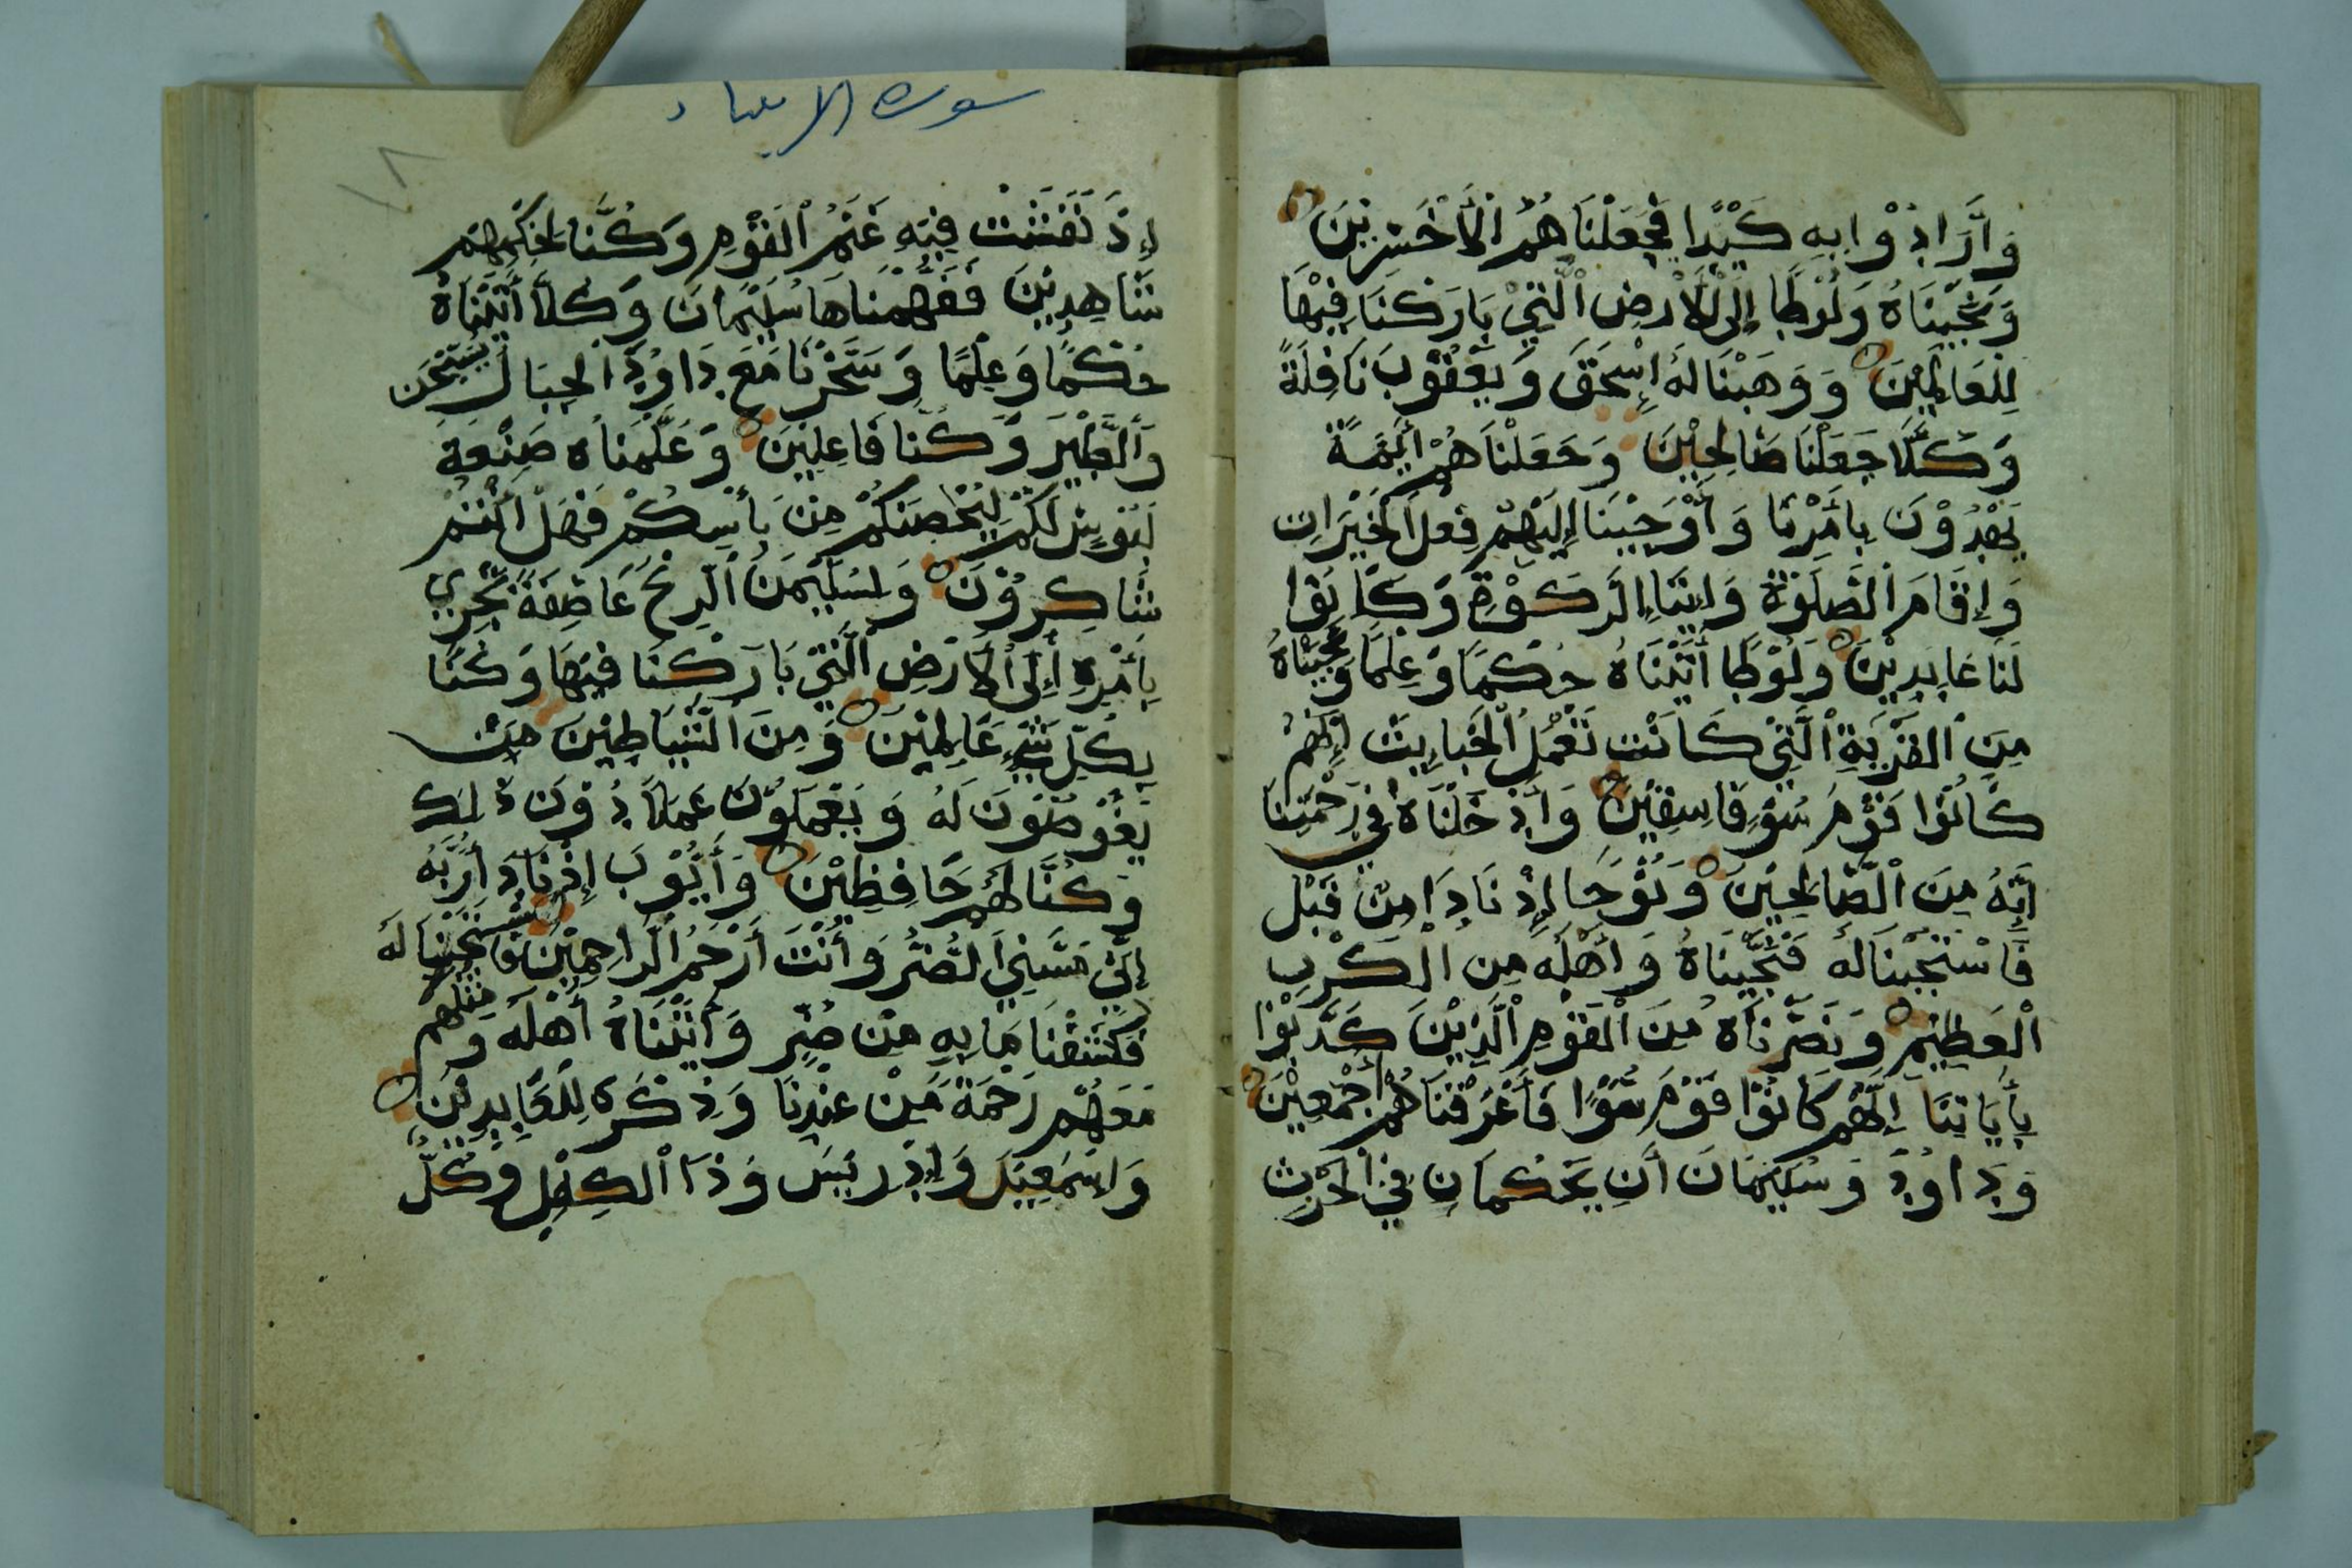 وَأَرَادُوْا بِهِ كَيْدًا فَجَعَلْنَاهُمُ الْأَخْسَرِيْنَ
وَنَجَّيْنَاهُ وَلُوْطًا إِلَى الْأَرْضِ الَّتِيْ بَارَكْنَا فِيْهَا
لِلْعَالَمِيْنَ وَوَهَبْنَا لَهُ إِسْحَقَ وَيَعْقُوْبَ نَافِلَةً
وَكُلًّا جَعَلْنَا صَالِحِيْنَ وَجَعَلْنَاهُمْ أَئِمَّةً
يَهْدُوْنَ بِأَمْرِنَا وَأَوْحَيْنَا إِلَيْهِمْ فِعْلَ الْخَيْرَاتِ
وَإِقَامَ الصَّلَوٰةِ وَإِيْتَاءَ الزَّكَوٰةِ وَكَانُوْا
لَنَا عَابِدِيْنَ وَلُوْطًا أَتَيْنَاهُ حُكْمًا وَعِلْمًا وَنَجَّيْنَاهُ
مِنَ الْقَرْيَةِ الَّتِيْ كَانَتْ تَعْمَلُ الْخَبَايِثَ إِنَّهُمْ
كَانُوْا قَوْمَ سَوْءٍ فَاسِقِيْنَ وَأَدْخَلْنَاهُ فِيْ رَحْمَتِنَا
إِنَّهُ مِنَ الصَّالِحِيْنَ وَنُوْحًا إِذْ نَادَا مِنْ قَبْلُ
فَاسْتَجَبْنَا لَهُ فَنَجَّيْنَاهُ وَأَهْلَهُ مِنَ الْكَرْبِ
الْعَظِيْمِ وَنَصَرْنَاهُ مِنَ الْقَوْمِ الَّذِيْنَ كَذَّبُوْا
بِأَيَاتِنَا إِنَّهُمْ كَانُوْا قَوْمَ سَوْءٍ فَأَغْرَقْنَاهُمْ أَجْمَعِيْنَ
وَدَاوُدَ وَسُلَيْمَانَ أَنْ يَحْكُمَانِ فِي الْحَرْثِ
سورة الانبياء
١٨
إِذْ نَفَشَتْ فِيْهِ غَنَمُ الْقَوْمِ وَكُنَّا لِحُكْمِهِمْ
شَاهِدِيْنَ فَفَهَّمْنَاهَا سُلَيْمَانَ وَكُلًّا أَتَيْنَاهُ
حُكْمًا وَعِلْمًا وَسَخَّرْنَا مَعَ دَاوُدَ الْجِبَالَ يُسَبِّحْنَ
وَالطَّيْرَ وَكُنَّا فَاعِلِيْنَ وَعَلَّمْنَاهُ صَنْعَةَ
لَبُوْسٍ لَكُمْ لِيُحْصِنَكُمْ مِنْ بَأْسِكُمْ فَهَلْ أَنْتُمْ
شَاكِرُوْنَ وَلِسُلَيْمَنَ الرِّيْحَ عَاصِفَةً تَجْرِيْ
بِأَمْرِهِ إِلَى الْأَرْضِ الَّتِيْ بَارَكْنَا فِيْهَا وَكُنَّا
بِكُلِّ شَيْءٍ عَالِمِيْنَ وَمِنَ الشَّيَاطِيْنَ مَنْ
يَغُوْصُوْنَ لَهُ وَيَعْمَلُوْنَ عَمَلًا دُوْنَ ذَلِكَ
وَكُنَّا لَهُمْ حَافِظِيْنَ وَأَيُّوْبَ إِذْ نَادَا رَبَّهُ
إِنِّيْ مَسَّنِيَ الضُّرُّ وَأَنْتَ أَرْحَمُ الرَّاحِمِيْنَ فَاسْتَجَبْنَا لَهُ
فَكَشَفْنَا مَا بِهِ مِنْ ضُرٍّ وَأَتَيْنَاهُ أَهْلَهُ وَمِثْلَهُمْ
مَعَهُمْ رَحْمَةً مِنْ عِنْدِنَا وَذِكْرَى لِلْعَابِدِيْنَ
وَإِسْمَعِيْلَ وَإِدْرِيْسَ وَذَا الْكِفْلِ وَكُلٌّ